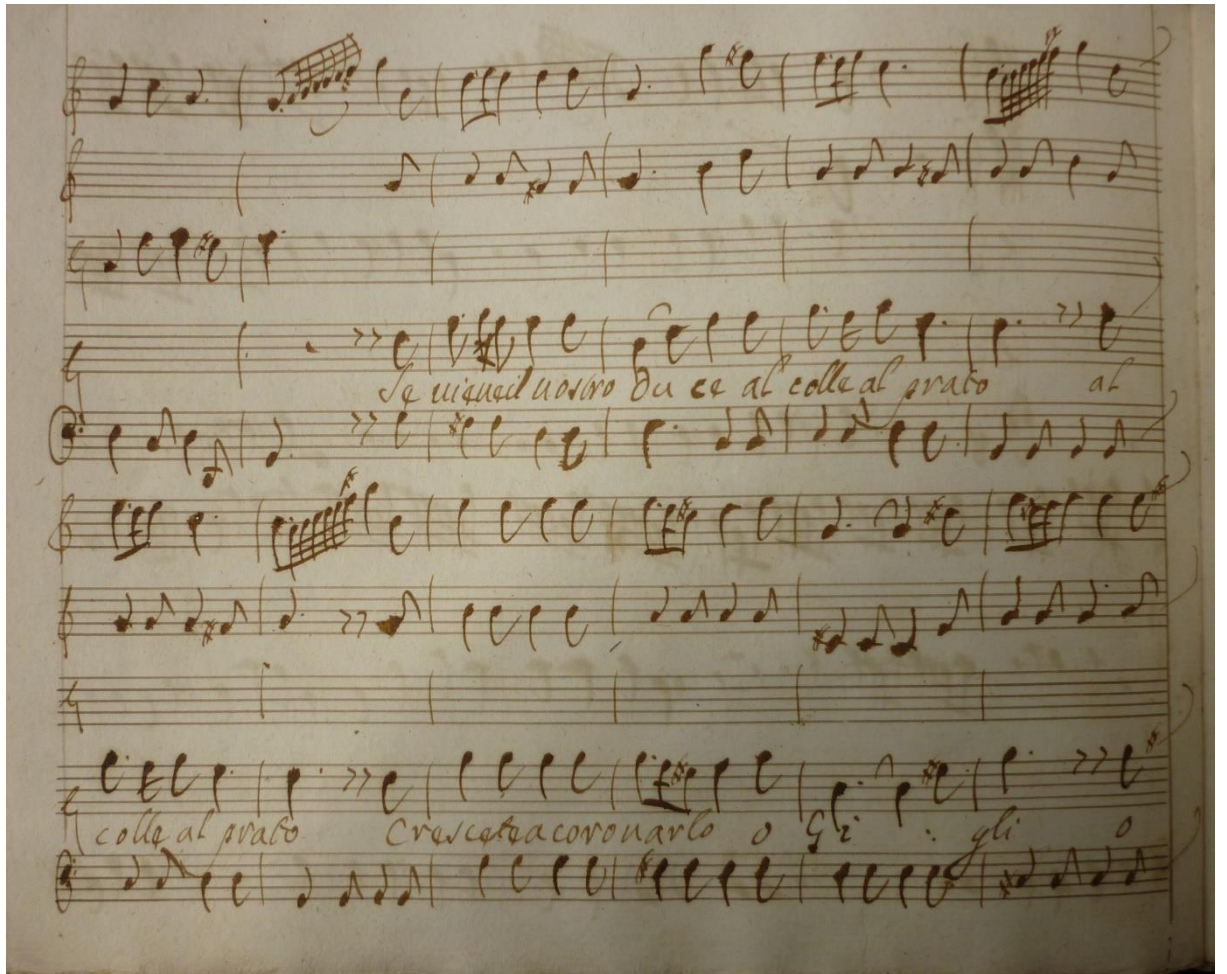 Se vieneil nostro Du ce al colle al prato al
colle al prato Crescetea coronarlo o Gi : gli o